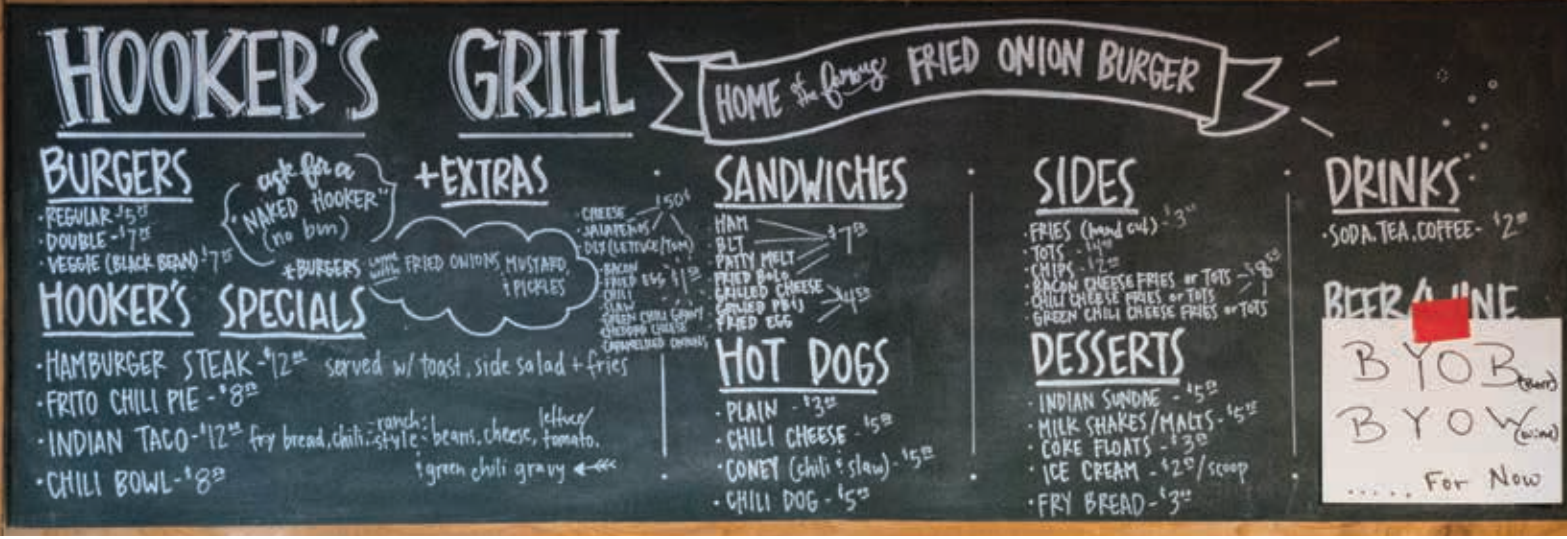 HOOKER'S GRILL
HOME of the famous FRIED ONION BURGER
BURGERS
• REGULAR $5⁰⁰
• DOUBLE - $7⁰⁰
• VEGGIE (BLACK BEAN) $7⁰⁰
ask for a
"NAKED HOOKER"
(no bun)
+EXTRAS
* BURGERS come with FRIED ONIONS, MUSTARD,
& PICKLES
• CHEESE
• JALAPEÑOS
• DLX (LETTUCE/TOM)
50¢
• BACON
• FRIED EGG
• CHILI
• SLAW
• GREEN CHILI GRAVY
• CHEDDAR CHEESE
• CARAMELIZED ONIONS
HOOKER'S SPECIALS
• HAMBURGER STEAK - $12⁰⁰ served w/ toast, side salad + fries
• FRITO CHILI PIE - $8⁰⁰
• INDIAN TACO - $12⁰⁰ fry bread, chili, ranch style beans, cheese, lettuce/tomato,
& green chili gravy
• CHILI BOWL - $8⁰⁰
SANDWICHES
HAM
BLT
PATTY MELT
FRIED BOLO
$7⁵⁰
GRILLED CHEESE
GRILLED PB&J
FRIED EGG
$4⁵⁰
HOT DOGS
• PLAIN - $3⁰⁰
• CHILI CHEESE - $5⁰⁰
• CONEY (chili & slaw) - $5⁰⁰
• CHILI DOG - $5⁰⁰
SIDES
• FRIES (hand cut) - $3
• TOTS
• CHIPS - $2⁰⁰
• BACON CHEESE FRIES or TOTS
• CHILI CHEESE FRIES or TOTS
• GREEN CHILI CHEESE FRIES or TOTS
DESSERTS
• INDIAN SUNDAE - $5⁰⁰
• MILK SHAKES/MALTS - $5⁰⁰
• COKE FLOATS - $3⁰⁰
• ICE CREAM - $2⁰⁰/scoop
• FRY BREAD - $3⁰⁰
DRINKS
• SODA, TEA, COFFEE - $2⁰⁰
BEER/WINE
BYOB (Beer)
BYOW (wine)
..... For Now